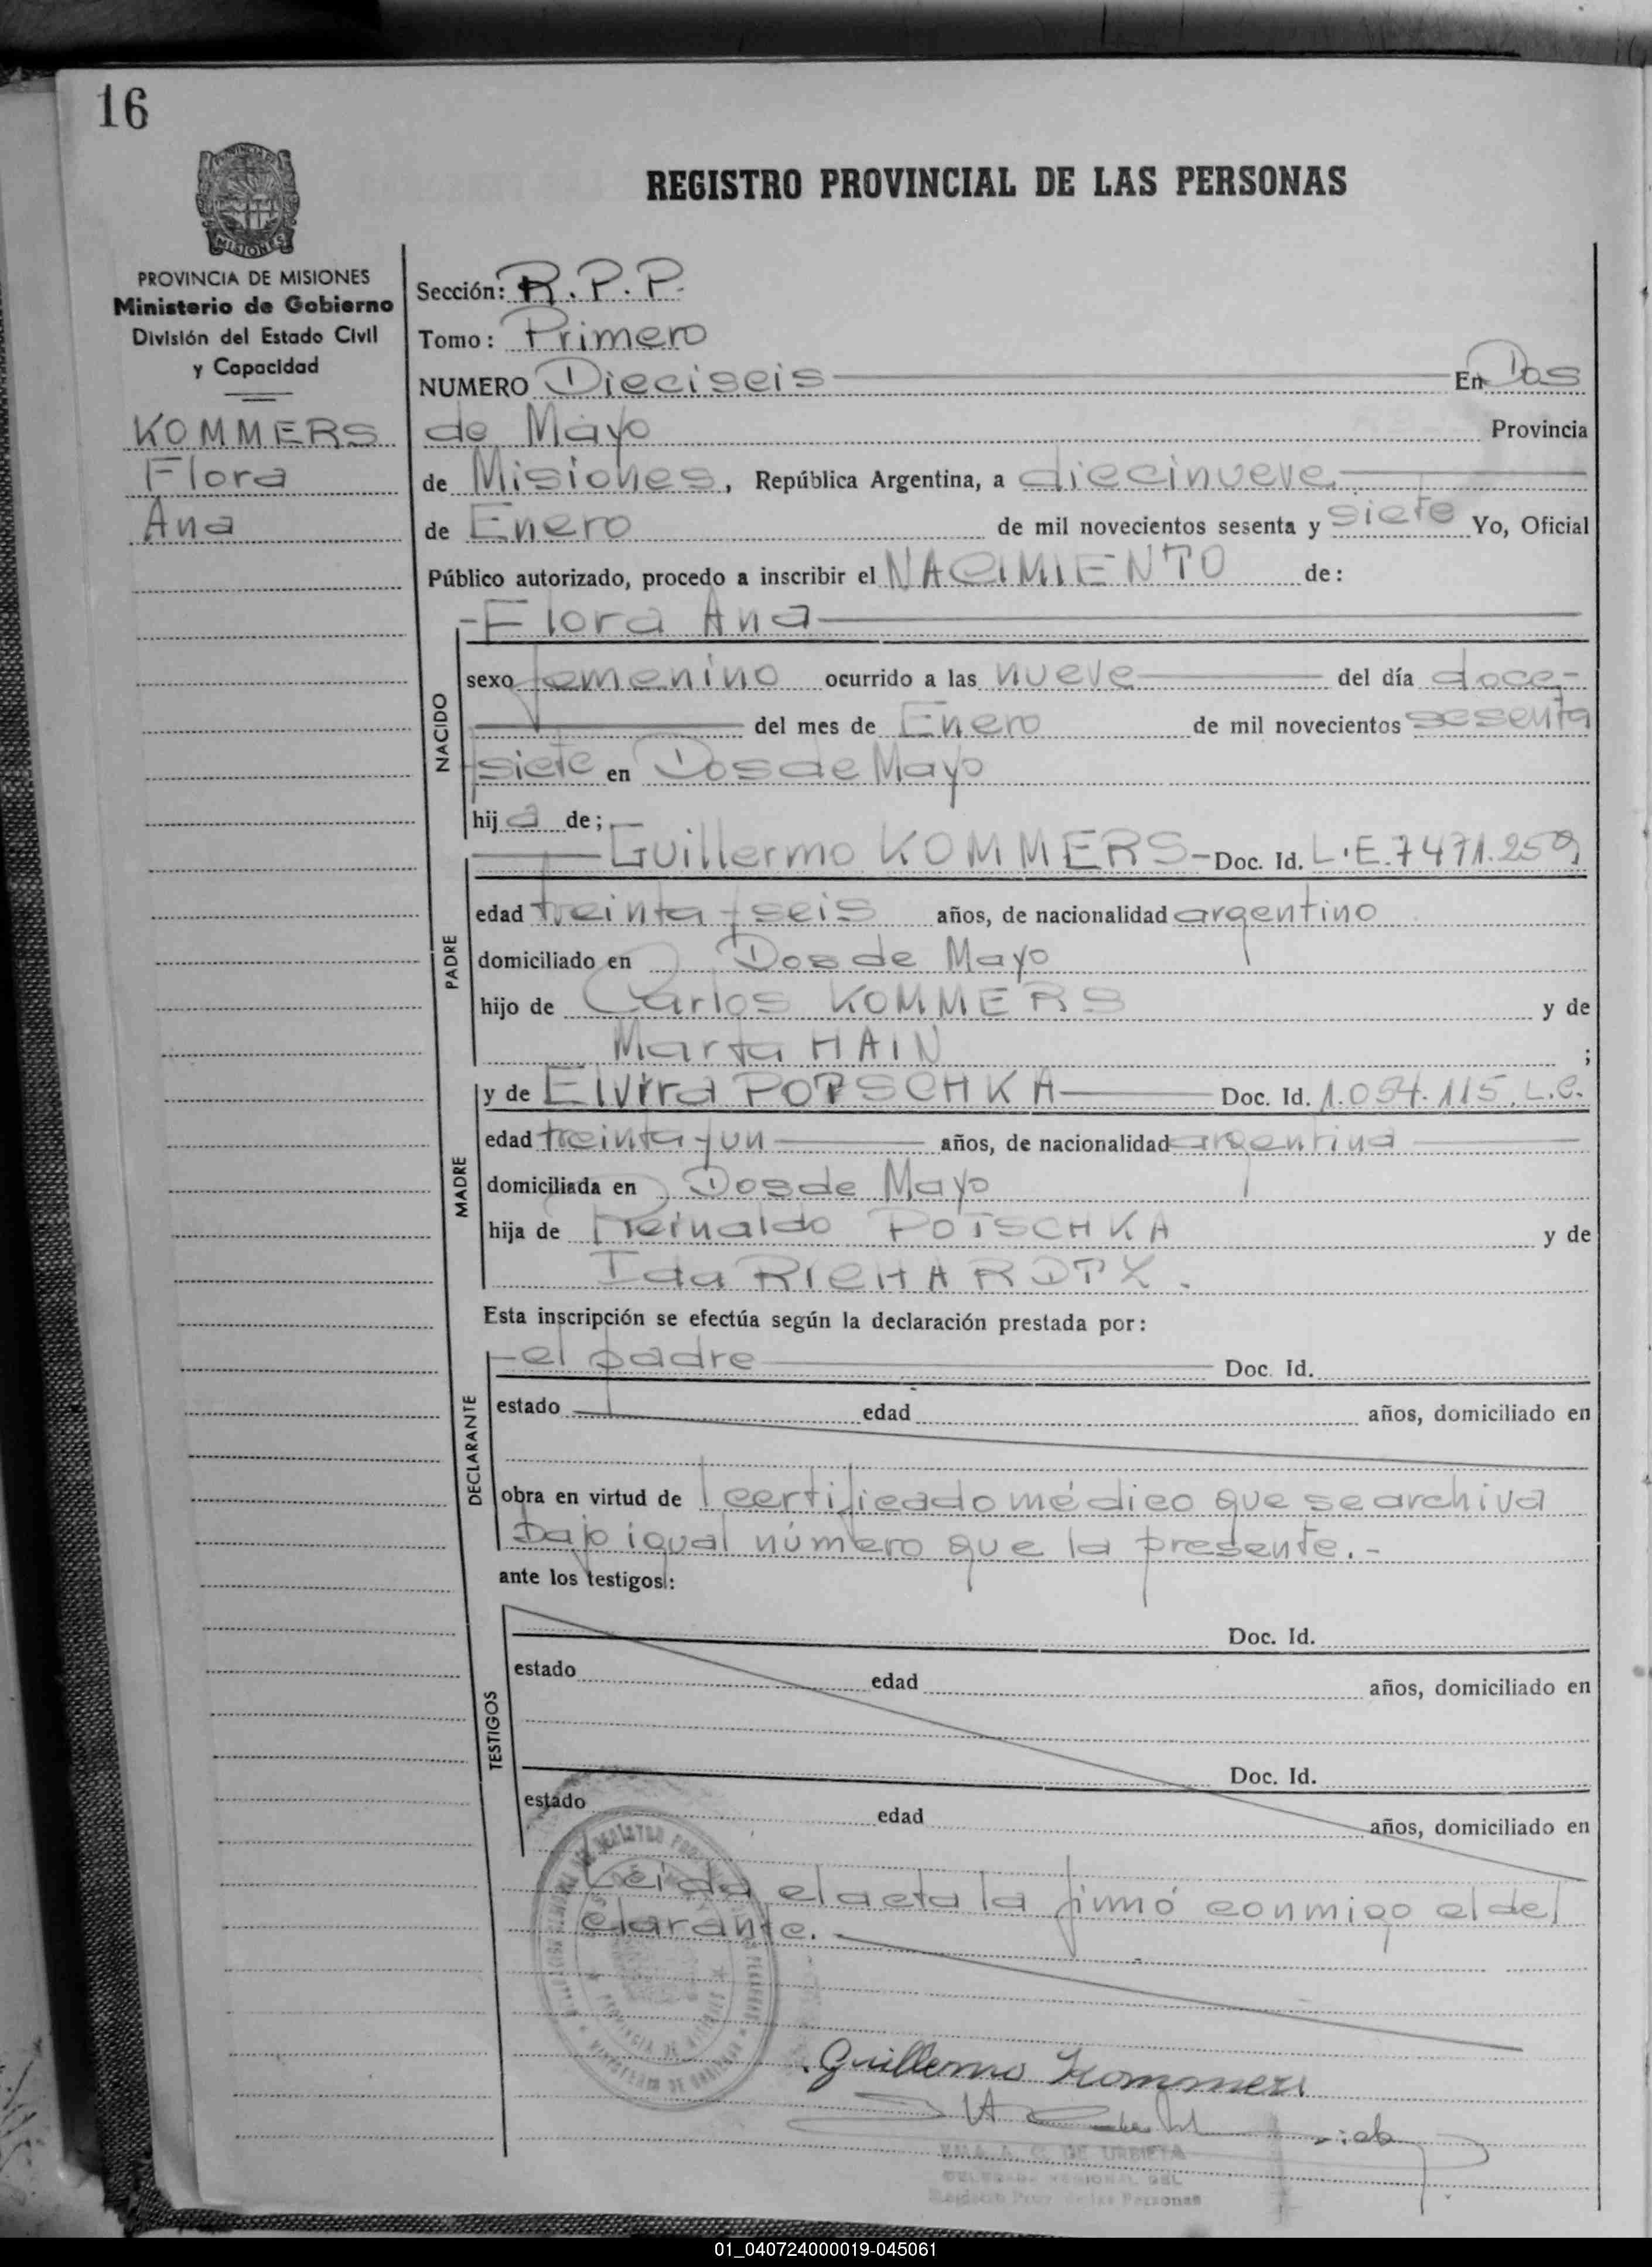 16
PROVINCIA DE
MISIONES
REGISTRO PROVINCIAL DE LAS PERSONAS
PROVINCIA DE MISIONES
Ministerio de Gobierno
División del Estado Civil
y Capacidad
KOMMERS
Flora
Ana
Sección: R.P.P.
Tomo: Primero
NUMERO Dieciseis En Dos
de Mayo Provincia
de Misiones, República Argentina, a diecinueve
de Enero de mil novecientos sesenta y siete Yo, Oficial
Público autorizado, procedo a inscribir el NACIMIENTO de:
- Flora Ana
NACIDO
sexo femenino ocurrido a las nueve del día doce,-
del mes de Enero de mil novecientos sesenta
y siete en Dos de Mayo
hija de;
Guillermo KOMMERS - Doc. Id. L.E. 7471.259
PADRE
edad treinta y seis años, de nacionalidad argentino
domiciliado en Dos de Mayo
hijo de Carlos KOMMERS y de
Marta HAIN ;
y de Elvira POTSCHKA Doc. Id. 1.054.115. L.C.
MADRE
edad treinta y un años, de nacionalidad argentina
domiciliada en Dos de Mayo
hija de Reinaldo POTSCHKA y de
Ida RICHARDTZ.
Esta inscripción se efectúa según la declaración prestada por:
- el padre Doc. Id.
DECLARANTE
estado edad años, domiciliado en
obra en virtud de l certificado médico que se archiva
bajo igual número que la presente.-
ante los testigos:
TESTIGOS
Doc. Id.
estado edad años, domiciliado en
Doc. Id.
estado edad años, domiciliado en
Leida el acta la firmó conmigo el de
clarante.
Guillermo Kommers
DE URBIETA
DELEGADA REGIONAL DEL
Registro Prov. de las Personas
01_040724000019-045061